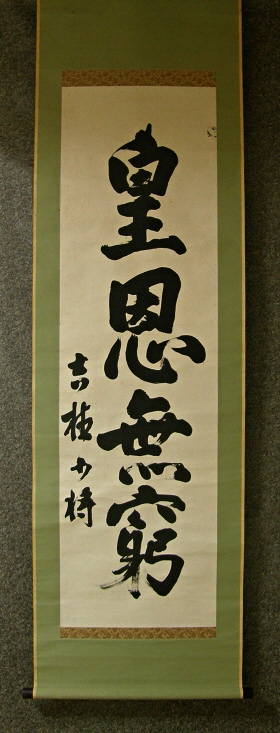 皇恩無窮
吉植少将